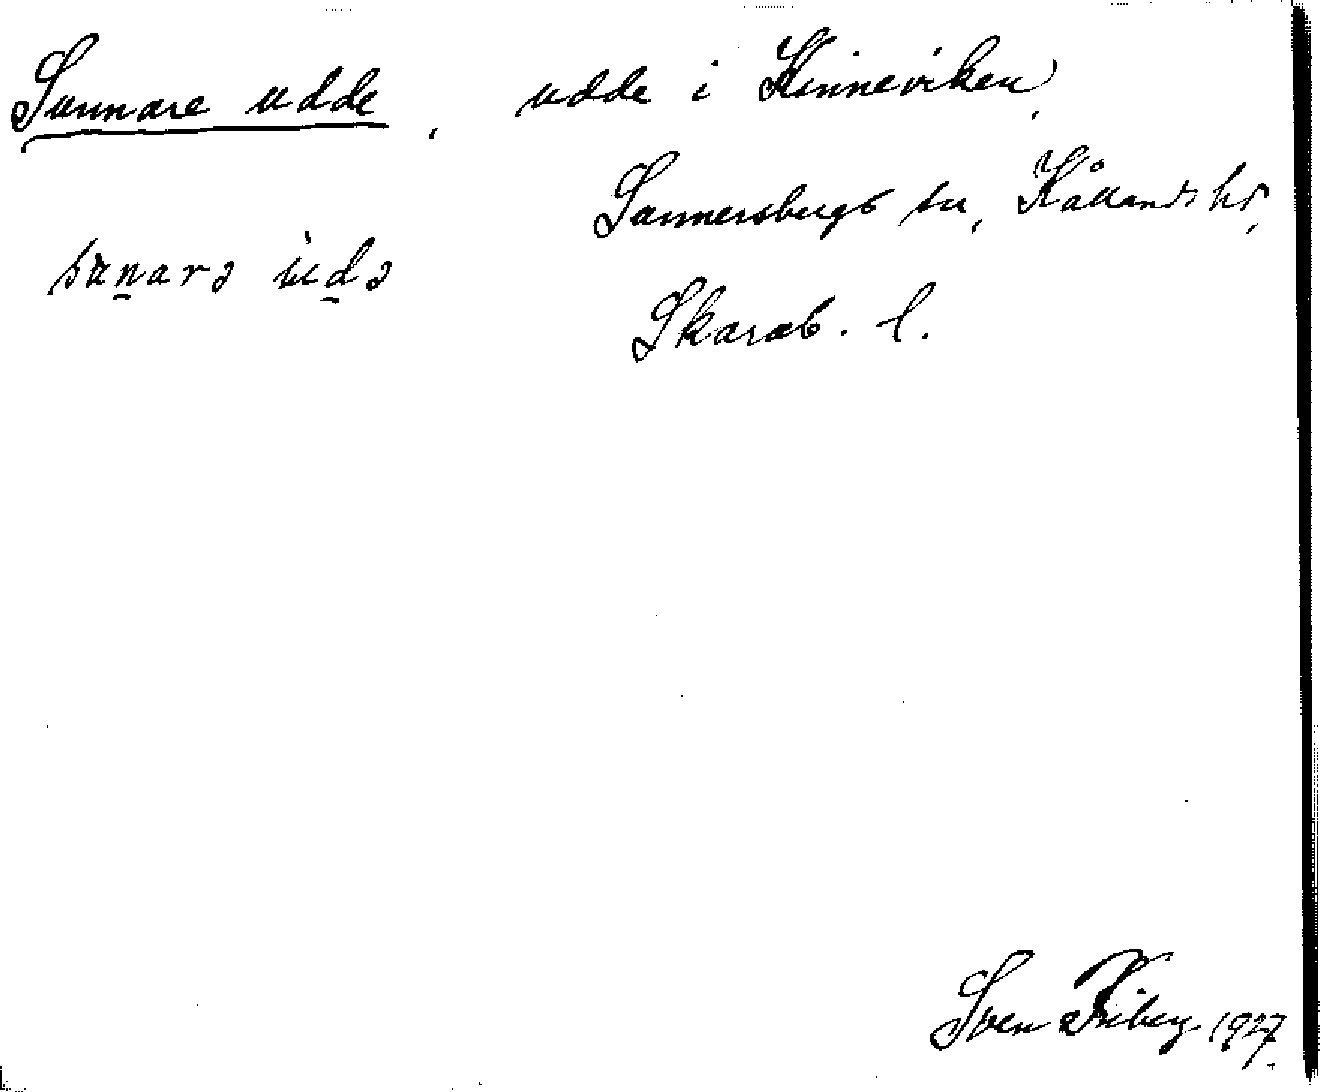 Sunnare udde, udde i Kinneviken,
Sunnersbergs sn, Kållands hd,
su̲narə ùd̲ə
Skarab. l.
Sven Friberg 1927.